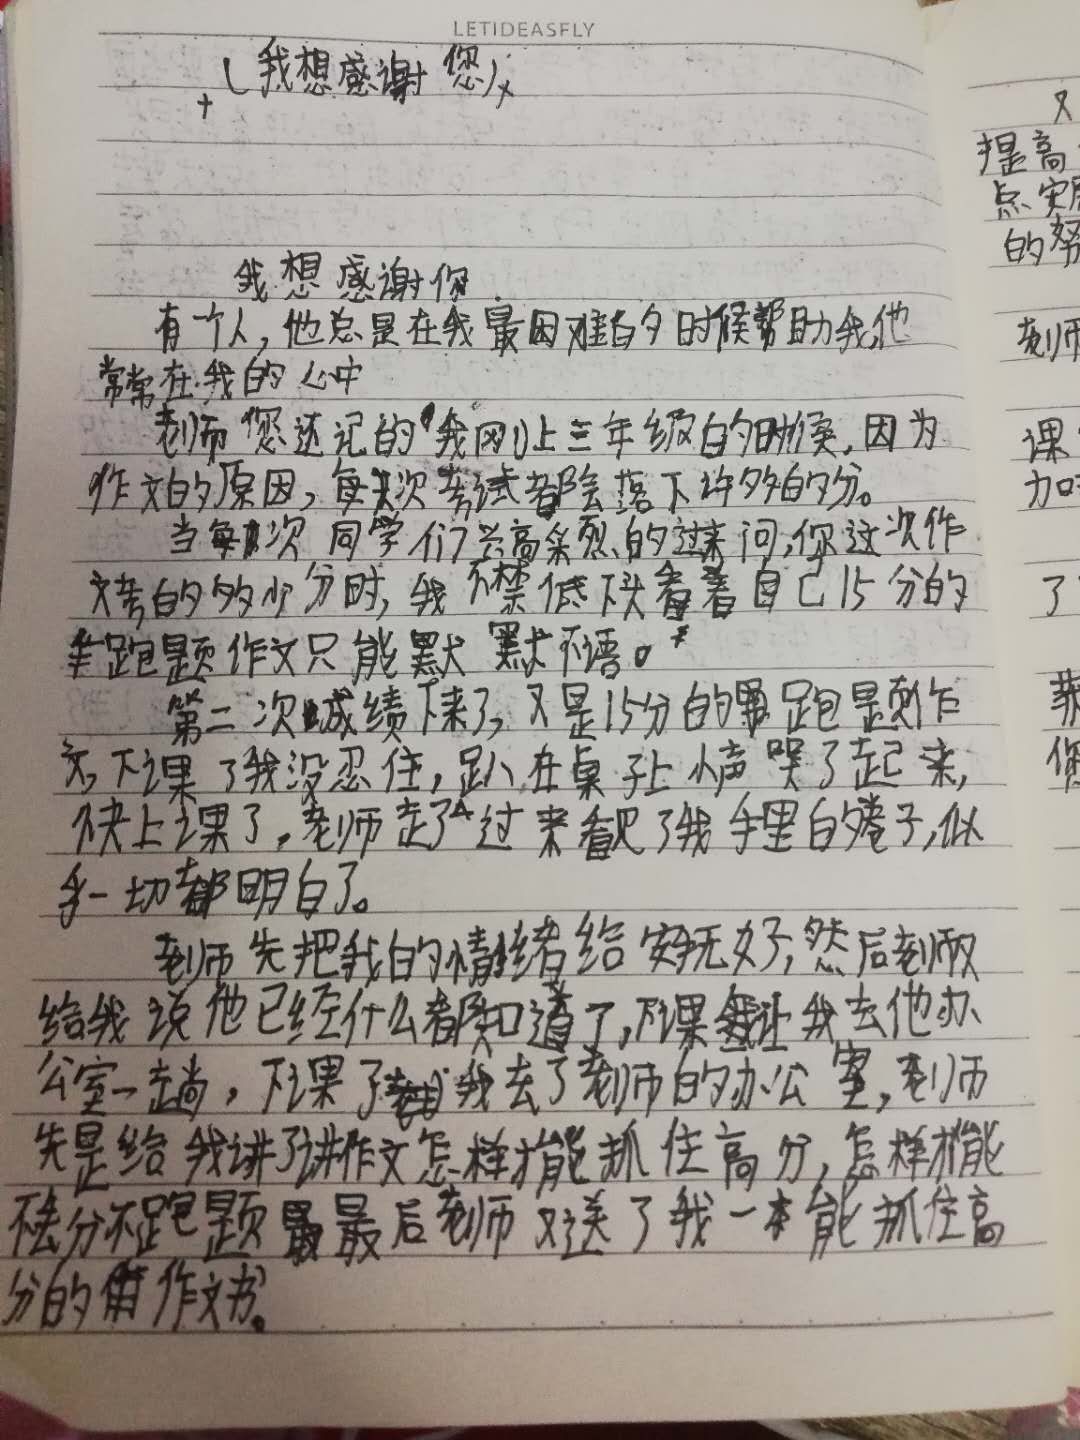 LETIDEASFLY
(我想感谢您)
我想感谢你
有一个人,他总是在我最困难的时候帮助我,他
常常在我的心中
老师您还记的我刚上三年级的时候,因为
作文的原因,每次考试都会落下许多的分。
当每次同学们兴高采烈的过来问,你这次作
文考的多少分时,我不禁低下头看着自己15分的
跑题作文只能默默不语。
第二次成绩下来了,又是15分的跑题作
文,下课了我没忍住,趴在桌子上小声哭了起来,
快上课了,老师走了过来看见了我手里的卷子,似
乎一切都明白了。
老师先把我的情绪给安抚好,然后老师又
给我说他已经什么都知道了,下课让我去他办
公室一趟,下课了我去了老师的办公室,老师
先是给我讲了讲作文怎样才能抓住高分,怎样才能
不丢分不跑题最后老师又送了我一本能抓住高
分的作文书。
又
提高
点实
的努
老师
课
加
了
获
您